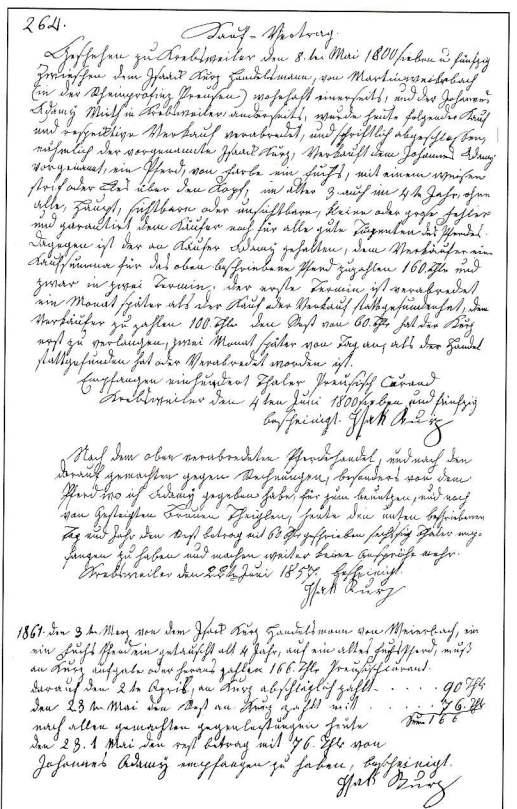 264.
Kauf-Vertrag.
Geschehen zu Krebsweiler den 8. ten Mai 1800 sieben u fünfzig
zwischen dem Isaak Kurz Handelsmann, von Martinweiersbach
(in der Rheinprofinz Preusen) wohnhaft einerseits, und der Johannes
Adamÿ Wirth in Krebsweiler anderseits, wurde heute folgender Kauf
und respecktive Verkauf verabredet, und schriftlich abgeschlossen,
nähmlich der vorgenannte Isaak Kurz, Verkauft dem Johannes Adamÿ
vorgenant, ein Pferd, von Farbe ein Fuchs, mit einem weisen
strich oder Bles über den Kopf, im alter 3 auch im 4 te Jahr, ohne
alle, Haupt, sichtbarn oder unsichtbarn, kleine oder grose Fehler
und garantirt dem Käufer noch für alle gute Tugenten des Pferdes.
Dagegen ist der an Käufer Adamÿ gehalten, dem Verkäufer eine
Kaufsumma für das oben beschriebene Pferd zuzahlen 160 Thlr und
zwar in zwei Termin: der erste Termin ist verabredet
ein Monat später als der Kauf oder Verkauf stattgefunden hat, dem
Verkäufer zu zahlen 100. Thlr. den Rest von 60. Thlr hat der Kurz
erst zu verlangen, zwei Monat später von Tag an, als der Handel
stattgefunden hat oder Verabredet worden ist.
Empfangen einhundert Thaler Preusisch Curand
Krebsweiler den 4 ten Juni 1800 sieben und fünfzig
bescheinigt. Isak Kurz
Nach dem oben verabredeten Pferdehandel, und nach den
darauf gemachten gegen Rechnungen, besonders von dem
Pferd wo ich Adamÿ gegeben habe, für zum benutzen, und noch
von heute den unten beschriebenen
Tag und Jahr den Rest betrag mit 60 sechszig Thaler emp-
fangen zu haben und machen weiter keine Ansprüche mehr.
Krebsweiler den 22 te Juni 1857. bescheinigt.
Isak Kurz
1861. den 3 te Merz von dem Isaak Kurz Handelsmann von Weierbach, ein
ein Fuchs Pferd ein getauscht alt 4 Jahr, auf ein altes Fuchspferd, muß
an Kurz aufgabe oder heraus zahlen 166. Thlr Preusisch Curant.
darauf den 2 te April, an Kurz abschläglich zahlt . . . . . 90 Thlr
den 23 te Mai den Rest an Kurz zahlt mit . . . . . 76. Thlr
nach allen gemachten gegenleistungen heute Sum 166
den 23. t Mai den rest betrag mit 76. Thlr von
Johannes Adamÿ empfangen zu haben, bescheinigt.
Isak Kurz